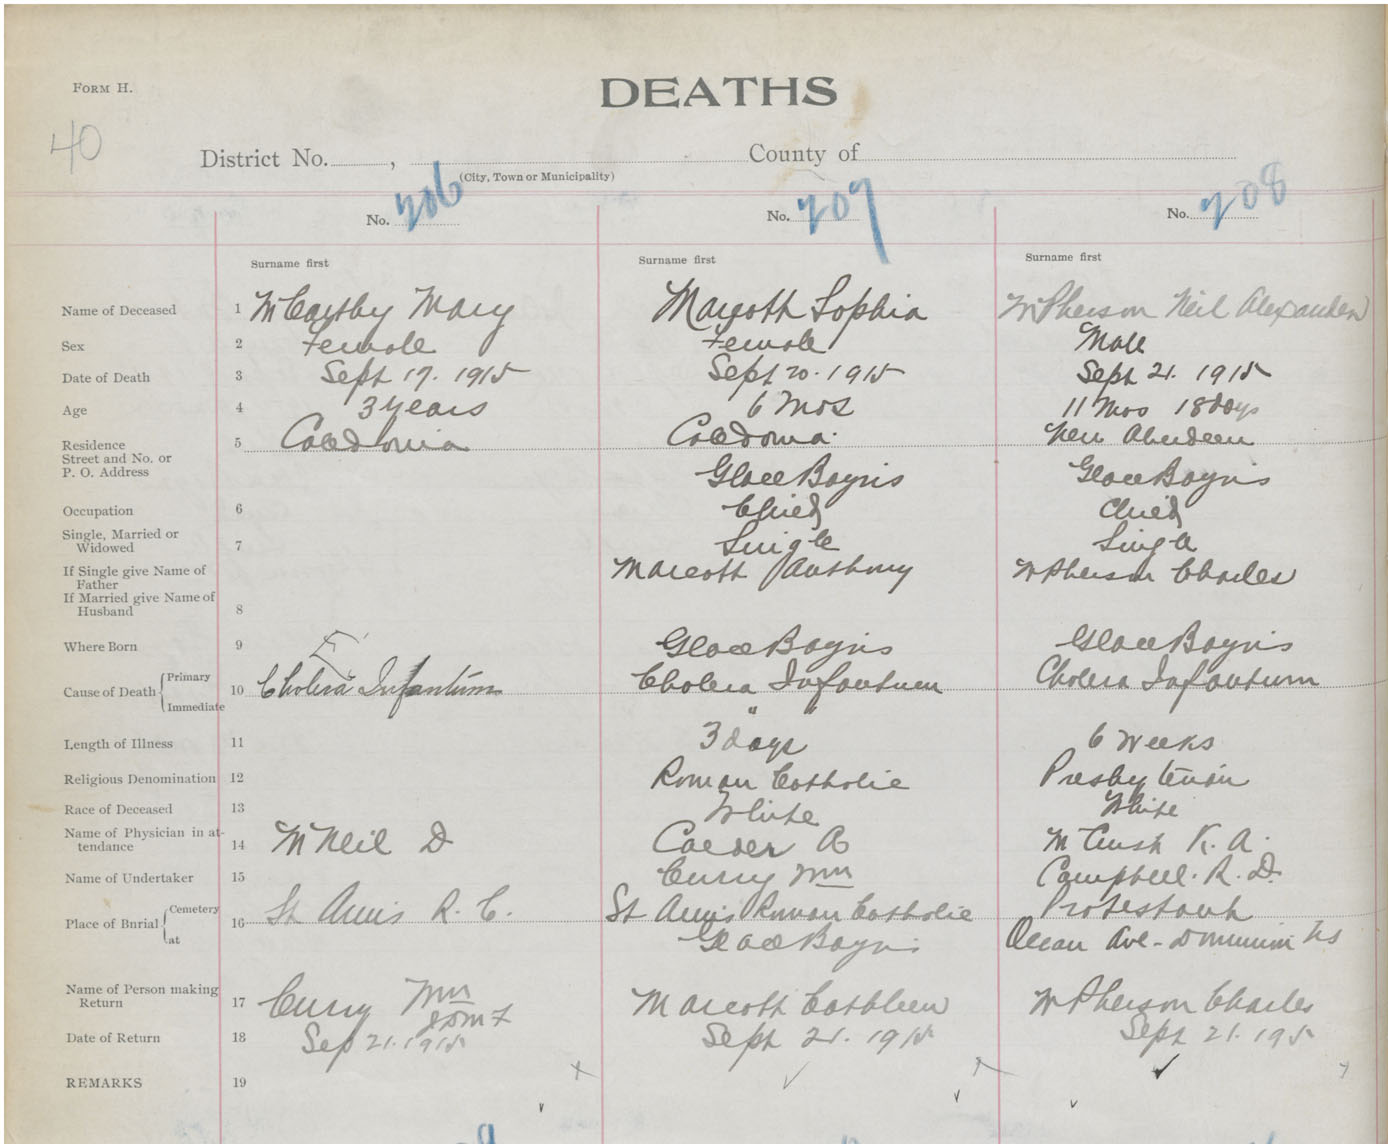 FORM H.
DEATHS
40
District No. , County of
(City, Town or Municipality)
No. 206 No. 207 No. 208
Surname first Surname first Surname first
Name of Deceased 1 McCarthy Mary Marcoth Sophia McPherson Neil Alexander
Sex 2 Female Female Male
Date of Death 3 Sept 17. 1915 Sept 20. 1915 Sept 21. 1915
Age 4 3 years 6 Mos 11 Mos 18 days
Residence 5 Caledonia Caledonia. New Aberdeen
Street and No. or
P. O. Address Glace Bay NS Glace Bay NS
Occupation 6 Child Child
Single, Married or
Widowed 7 Single Single
If Single give Name of
Father Marcoth Anthony McPherson Charles
If Married give Name of
Husband 8
Where Born 9 Glace Bay NS Glace Bay NS
Cause of Death Primary
10 Cholera Infantum Cholera Infantum Cholera Infantum
Immediate " "
Length of Illness 11 3 days 6 Weeks
Religious Denomination 12 Roman Catholic Presbyterian
Race of Deceased 13 White White
Name of Physician in at-
tendance 14 McNeil D Calder A K. A.
Name of Undertaker 15 Curry Wm Campbell. R. D.
Place of Bnrial Cemetery
16 St Anns R. C. St Anns Roman Catholic Protestant
at Glace Bay NS Ocean Ave - Dominion NS
Name of Person making
Return 17 Curry Wm Marcoth Cathleen McPherson Charles
Date of Return 18 Sep 21. 1915 Sept 21. 1915 Sept 21. 1915
REMARKS 19